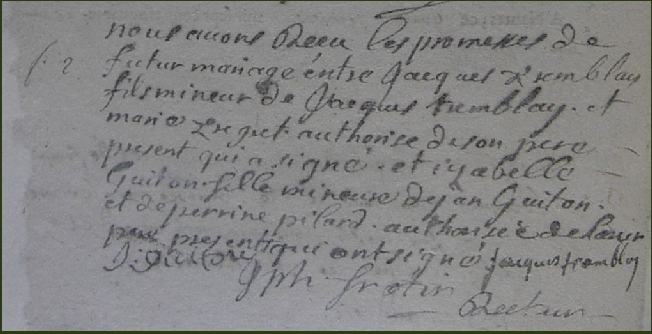 nous avons Receu les promesses de
f. 2. futur mariage entre Jacques Tremblay
fils mineur de Jacques tremblay. et
marie authorise de son pere
present qui a signé. et isabelle
Guiton fille mineure de jan Guiton.
et de perrine pilard. authorisée de
pere present qui ont signé jacques tremblay
Recteur